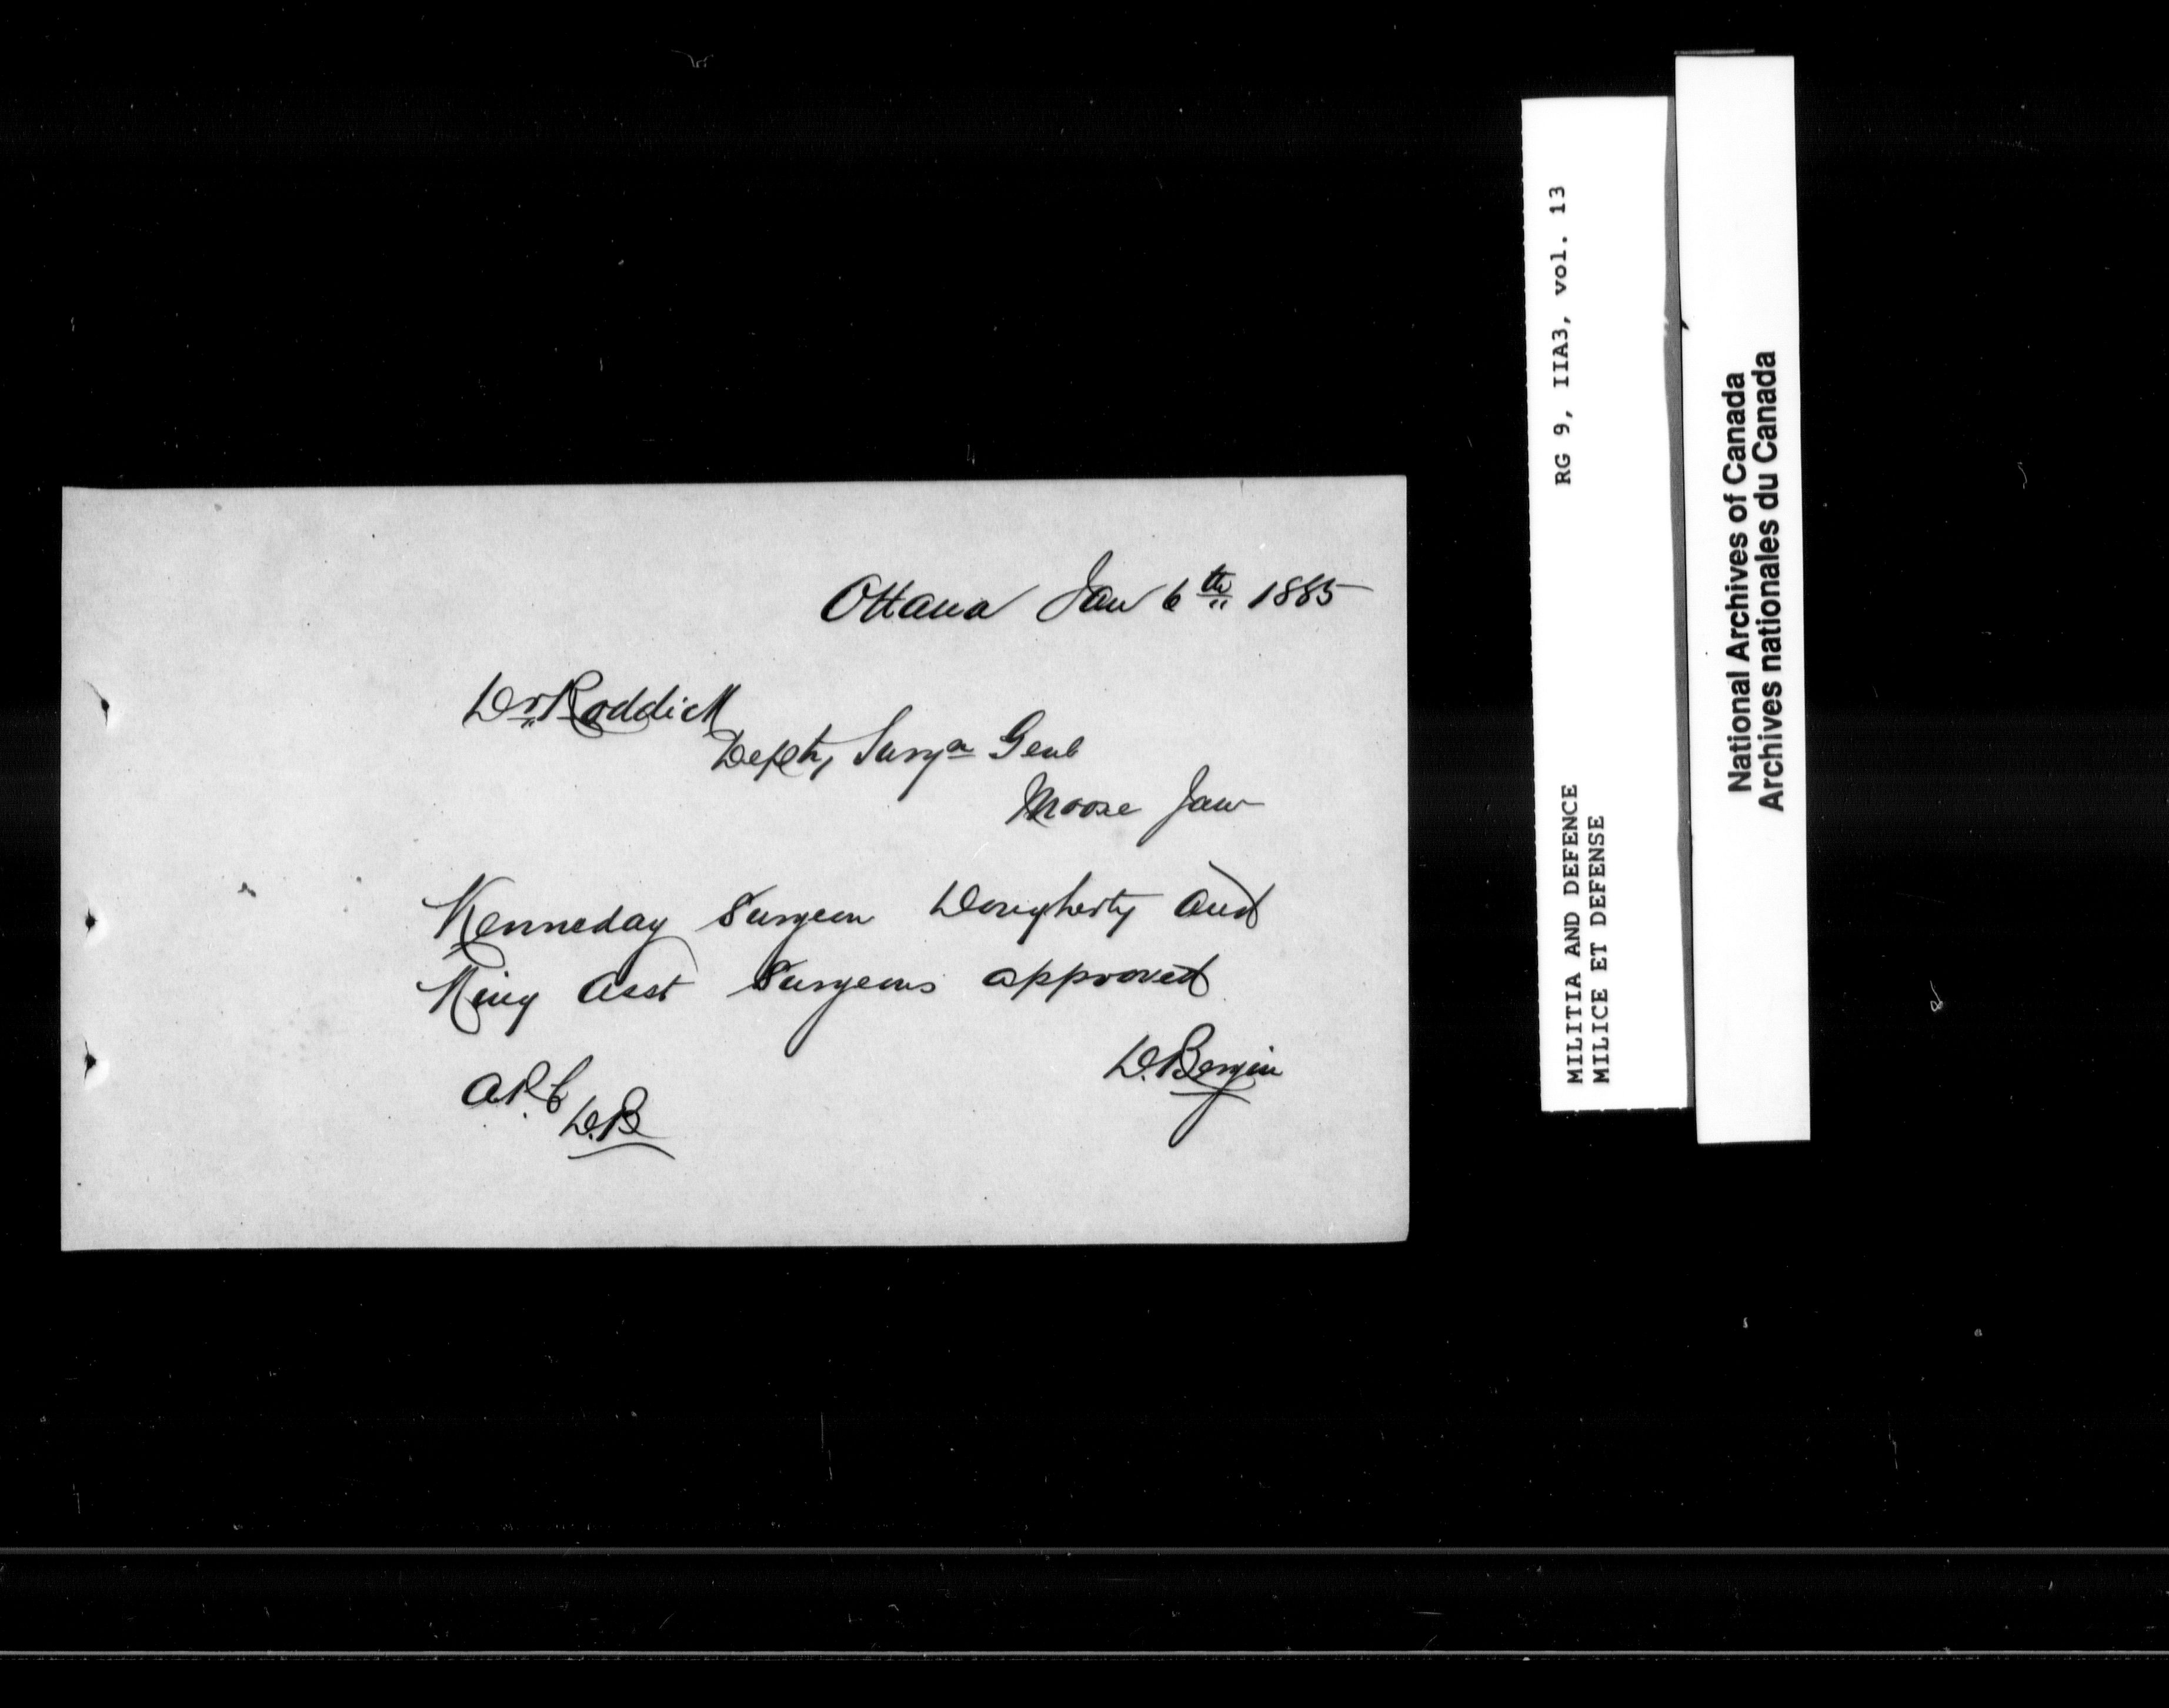 Ottawa Jan 6th 1885
Dr Roddick
Depty Surgn Genl
Moose Jaw
Kenneday Surgeon Dougherty and
King Asst Surgeons approved
D. Bergin
D.B
RG 9, IIA3, vol. 13
MILITIA AND DEFENCE
MILICE ET DEFENSE
National Archives of Canada
Archives nationales du Canada